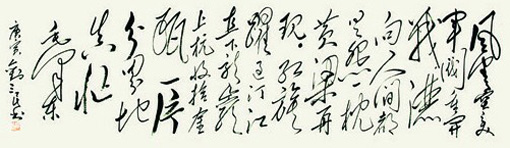 風雲突變
軍閥重開
戰灑
向人間都
是怨一枕
黃粱再
現紅旗
躍過汀江
直下龍巖
上杭收拾金
甌一片
分田分地
真忙
毛澤東
庚寅